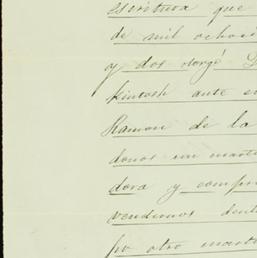 escritura que
de mil ochosi
y dos otorgó D
kintosh ante e
Ramon de la
donos un marte
dora y compr
vendimos dent
po otro marte